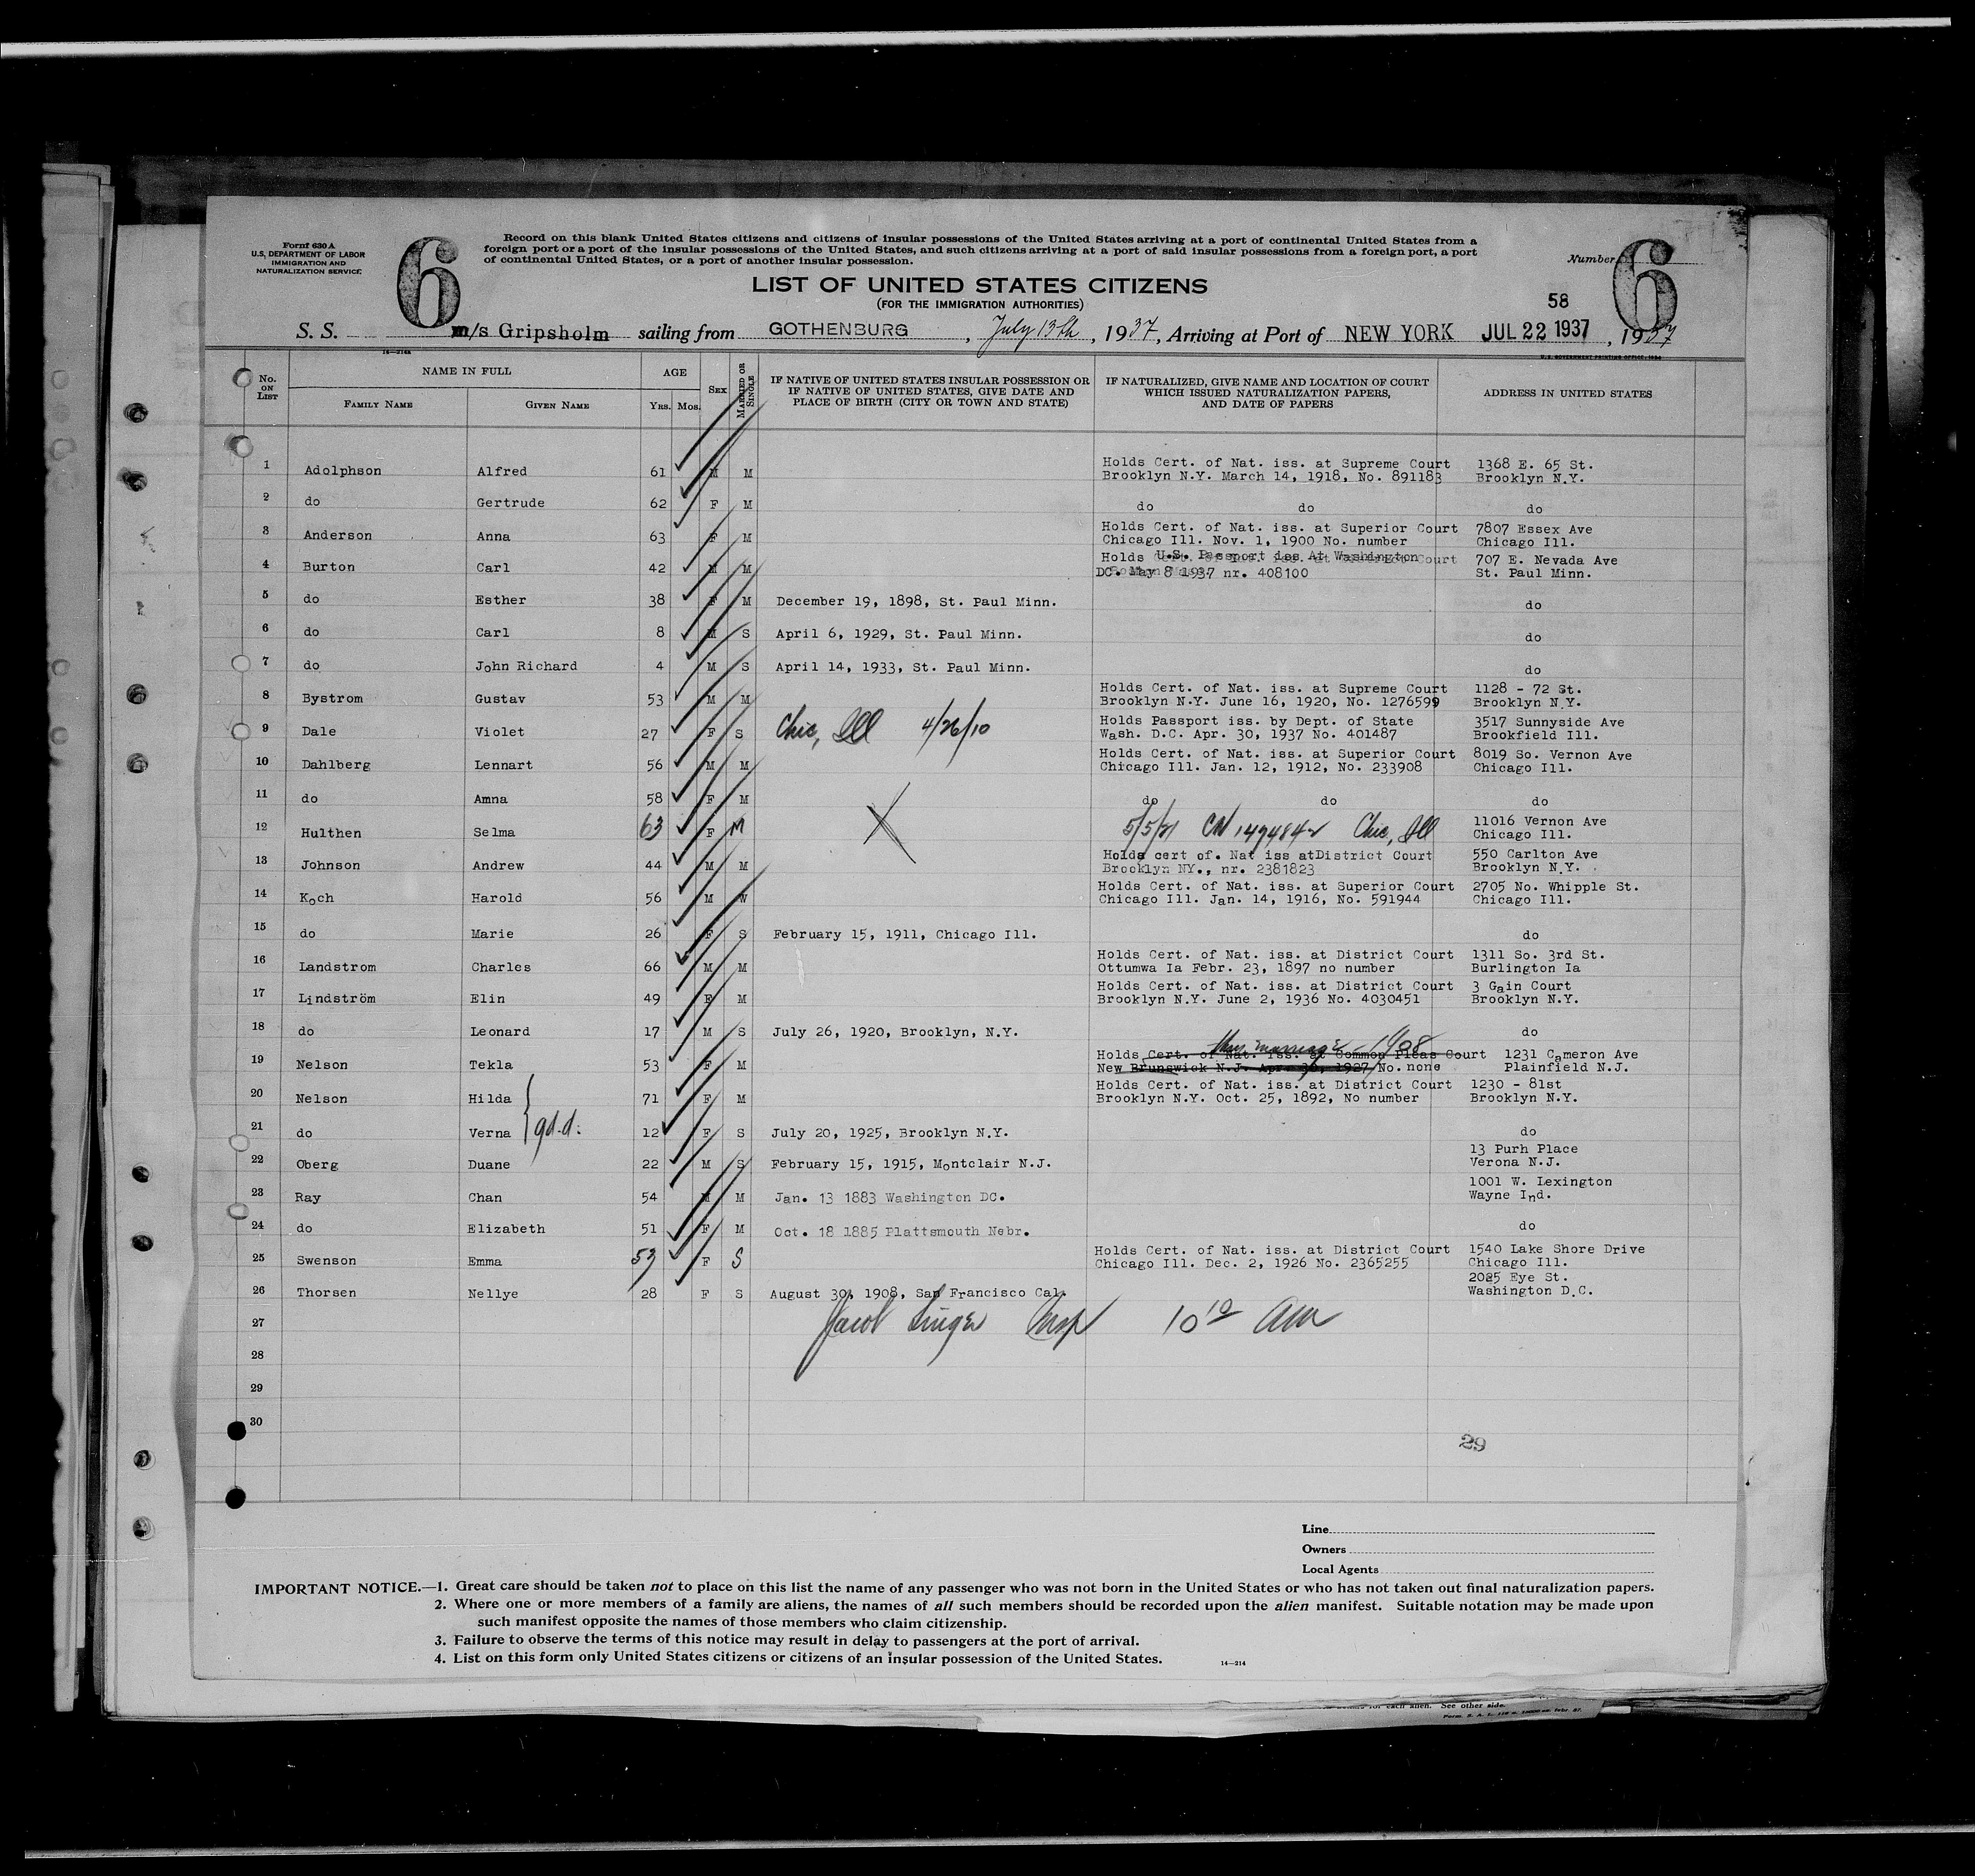 Form 630 A
U.S. DEPARTMENT OF LABOR
IMMIGRATION AND
NATURALIZATION SERVICE
6
Record on this blank United States citizens and citizens of insular possessions of the United States arriving at a port of continental United States from a
foreign port or a port of the insular possessions of the United States, and such citizens arriving at a port of said insular possessions from a foreign port, a port
of continental United States, or a port of another insular possession.
Number 6
LIST OF UNITED STATES CITIZENS
(FOR THE IMMIGRATION AUTHORITIES)
58
S. S. m/s Gripsholm sailing from GOTHENBURG, July 13th, 1937, Arriving at Port of NEW YORK JUL 22 1937, 1937
No. ON LIST
NAME IN FULL
FAMILY NAME GIVEN NAME
AGE
YRS. MOS.
SEX
MARRIED OR SINGLE
IF NATIVE OF UNITED STATES INSULAR POSSESSION OR
IF NATIVE OF UNITED STATES, GIVE DATE AND
PLACE OF BIRTH (CITY OR TOWN AND STATE)
IF NATURALIZED, GIVE NAME AND LOCATION OF COURT
WHICH ISSUED NATURALIZATION PAPERS,
AND DATE OF PAPERS
ADDRESS IN UNITED STATES
1 Adolphson Alfred 61 M M Holds Cert. of Nat. iss. at Supreme Court 1368 E. 65 St.
Brooklyn N.Y. March 14, 1918, No. 891183 Brooklyn N.Y.
2 do Gertrude 62 F M do do do
3 Anderson Anna 63 F M Holds Cert. of Nat. iss. at Superior Court 7807 Essex Ave
Chicago Ill. Nov. 1, 1900 No. number Chicago Ill.
4 Burton Carl 42 M M Holds U.S. Passport iss At Washington 707 E. Nevada Ave
DC. May 8 1937 nr. 408100 St. Paul Minn.
5 do Esther 38 F M December 19, 1898, St. Paul Minn. do
6 do Carl 8 M S April 6, 1929, St. Paul Minn. do
7 do John Richard 4 M S April 14, 1933, St. Paul Minn. do
8 Bystrom Gustav 53 M M Holds Cert. of Nat. iss. at Supreme Court 1128 - 72 St.
Brooklyn N.Y. June 16, 1920, No. 1276599 Brooklyn N.Y.
9 Dale Violet 27 F S Chic, Ill 4/26/10 Holds Passport iss. by Dept. of State 3517 Sunnyside Ave
Wash. D.C. Apr. 30, 1937 No. 401487 Brookfield Ill.
10 Dahlberg Lennart 56 M M Holds Cert. of Nat. iss. at Superior Court 8019 So. Vernon Ave
Chicago Ill. Jan. 12, 1912, No. 233908 Chicago Ill.
11 do Amna 58 F M do do do
12 Hulthen Selma 63 F M 5/5/21 CN Chic, Ill 11016 Vernon Ave
Chicago Ill.
13 Johnson Andrew 44 M M Holds cert of. Nat iss atDistrict Court 550 Carlton Ave
Brooklyn NY., nr. 2381823 Brooklyn N.Y.
14 Koch Harold 56 M W Holds Cert. of Nat. iss. at Superior Court 2705 No. Whipple St.
Chicago Ill. Jan. 14, 1916, No. 591944 Chicago Ill.
15 do Marie 26 F S February 15, 1911, Chicago Ill. do
16 Landstrom Charles 66 M M Holds Cert. of Nat. iss. at District Court 1311 So. 3rd St.
Ottumwa Ia Febr. 23, 1897 no number Burlington Ia
17 Lindström Elin 49 F M Holds Cert. of Nat. iss. at District Court 3 Gain Court
Brooklyn N.Y. June 2, 1936 No. 4030451 Brooklyn N.Y.
18 do Leonard 17 M S July 26, 1920, Brooklyn, N.Y. do
thru marriage - 1908
19 Nelson Tekla 53 F M Holds Cert. of Nat. iss. at Common Pleas Court 1231 Cameron Ave
New Brunswick N.J. Apr. 30, 1927, No. none Plainfield N.J.
20 Nelson Hilda 71 F M Holds Cert. of Nat. iss. at District Court 1230 - 81st
Brooklyn N.Y. Oct. 25, 1892, No number Brooklyn N.Y.
gd.d.
21 do Verna 12 F S July 20, 1925, Brooklyn N.Y. do
22 Oberg Duane 22 M S February 15, 1915, Montclair N.J. 13 Purh Place
Verona N.J.
23 Ray Chan 54 M M Jan. 13 1883 Washington DC. 1001 W. Lexington
Wayne Ind.
24 do Elizabeth 51 F M Oct. 18 1885 Plattsmouth Nebr. do
25 Swenson Emma 53 F S Holds Cert. of Nat. iss. at District Court 1540 Lake Shore Drive
Chicago Ill. Dec. 2, 1926 No. 2365255 Chicago Ill.
26 Thorsen Nellye 28 F S August 30, 1908, San Francisco Cal. 2025 Eye St.
Washington D.C.
27 Jacob Singer Insp 10 10 am
28
29
30
29
Line
Owners
Local Agents
IMPORTANT NOTICE.—1. Great care should be taken not to place on this list the name of any passenger who was not born in the United States or who has not taken out final naturalization papers.
2. Where one or more members of a family are aliens, the names of all such members should be recorded upon the alien manifest. Suitable notation may be made upon
such manifest opposite the names of those members who claim citizenship.
3. Failure to observe the terms of this notice may result in delay to passengers at the port of arrival.
4. List on this form only United States citizens or citizens of an insular possession of the United States.
14—214
for each alien. See other side.